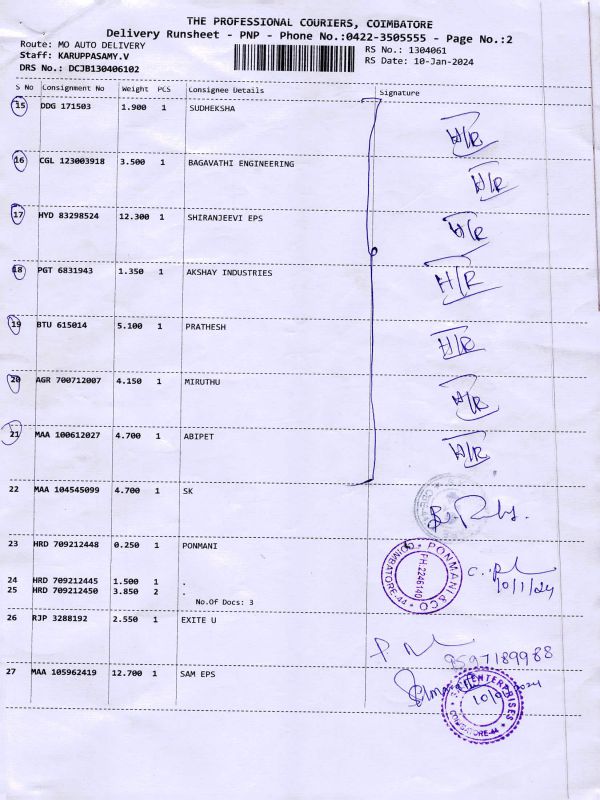 THE PROFESSIONAL COURIERS, COIMBATORE
Delivery Runsheet - PNP - Phone No.:0422-3505555 - Page No.:2
Route: MO AUTO DELIVERY
Staff: KARUPPASAMY.V
DRS No.: DCJB130406102
RS No.: 1304061
RS Date: 10-Jan-2024
S No Consignment No Weight PCS Consignee Details Signature
15 DDG 171503 1.900 1 SUDHEKSHA H/R
16 CGL 123003918 3.500 1 BAGAVATHI ENGINEERING H/R
17 HYD 83298524 12.300 1 SHIRANJEEVI EPS H/R
18 PGT 6831943 1.350 1 AKSHAY INDUSTRIES H/R
19 BTU 615014 5.100 1 PRATHESH H/R
20 AGR 700712007 4.150 1 MIRUTHU H/R
21 MAA 100612027 4.700 1 ABIPET H/R
22 MAA 104545099 4.700 1 SK
23 HRD 709212448 0.250 1 PONMANI
PONMANI & CO
COIMBATORE-44
PH:2246140
10/1/24
24 HRD 709212445 1.500 1 .
25 HRD 709212450 3.850 2 .
No.Of Docs: 3
26 RJP 3288192 2.550 1 EXITE U
9597189988
27 MAA 105962419 12.700 1 SAM EPS
ENTERPRISES
COIMBATORE-44